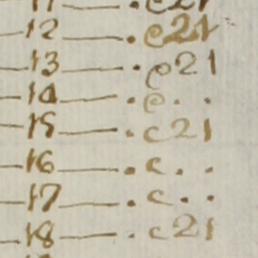 12 —— . c21
13 —— . c21
14 —— . c . .
15 —— . c21
16 —— . c . .
17 —— . c . .
18 —— . c21